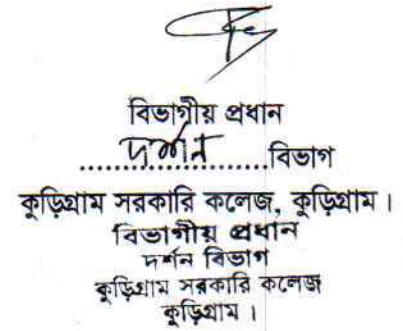 বিভাগীয় প্রধান
দর্শন বিভাগ
কুড়িগ্রাম সরকারি কলেজ, কুড়িগ্রাম।
বিভাগীয় প্রধান
দর্শন বিভাগ
কুড়িগ্রাম সরকারি কলেজ
কুড়িগ্রাম।